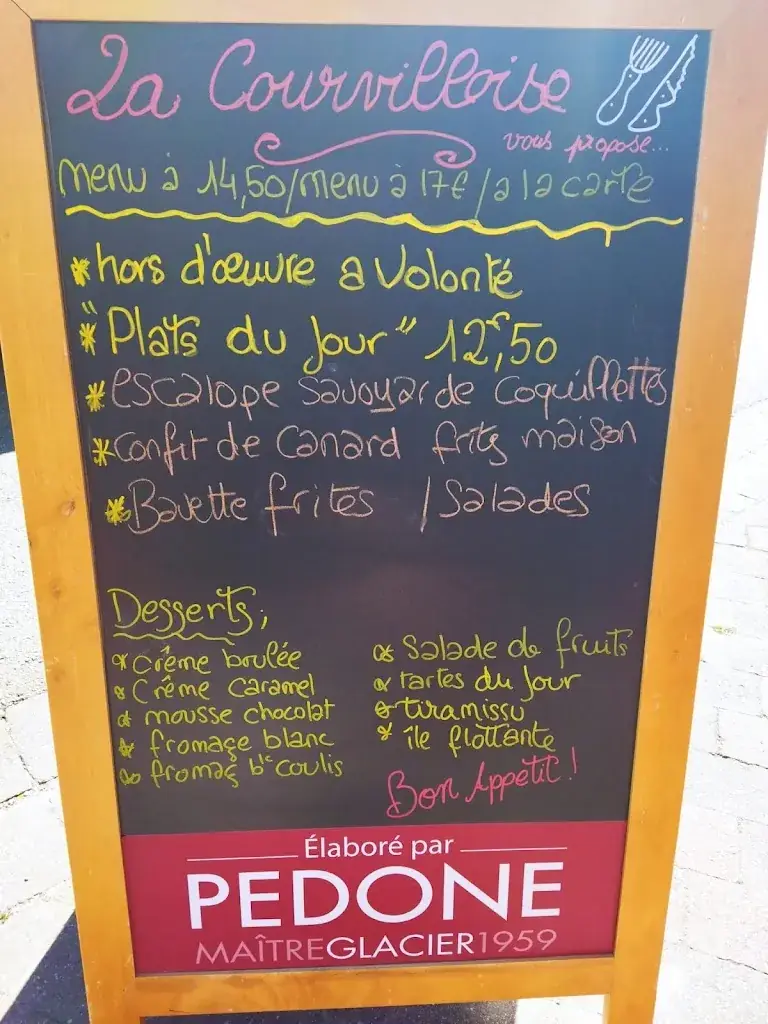 La Courvilloise
vous propose...
menu à 14,50/menu à 17€/a la carte
*hors d'œuvre a volonté
*"Plats du Jour" 12€,50
*escalope savoyarde coquillettes
*confit de canard frites maison
*Bavette frites / Salades
Desserts;
*crème brulée
*Crème caramel
*mousse chocolat
*fromage blanc
*fromag bc coulis
*salade de fruits
*tartes du jour
*tiramissu
*île flottante
Bon Appétit!
Élaboré par
PEDONE
MAÎTREGLACIER1959